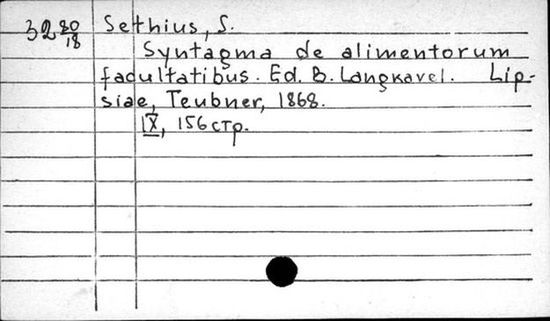 32 80/18 Sethius, S.
Syntagma de alimentorum
facultatibus. Ed. B. Langkavel. Lip-
siae, Teubner, 1868.
IX, 156 стр.